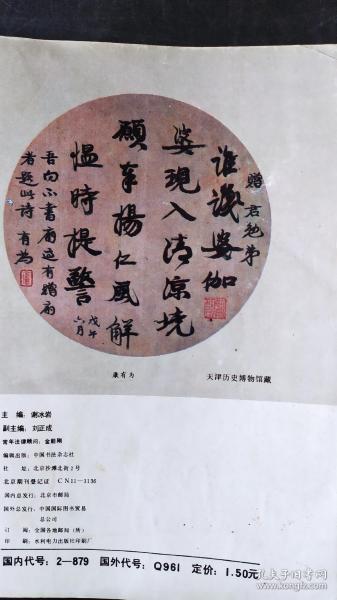 赠君勉弟
谁识婆伽
婆现入清凉境
愿奉扬仁风解
愠时提警
戊午
六月
吾向不书扇迩有赠扇
者题此诗 有为
康有为
天津历史博物馆藏
主编：谢冰岩
副主编：刘正成
常年法律顾问：金勤刚
编辑出版：中国书法杂志社
社址：北京沙滩北街2号
北京期刊登记证 CN11—1136
国内总发行：北京市邮局
国外总发行：中国国际图书贸易
总公司
订阅：全国各地邮局（所）
印刷：水利电力出版社印刷厂
国内代号：2—879 国外代号：Q961 定价：1.50元
孔夫子旧书网